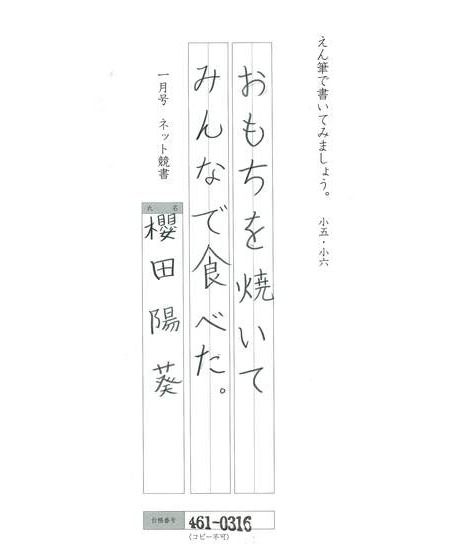 えん筆で書いてみましょう。 小五・小六
おもちを焼いて
みんなで食べた。
一月号 ネット競書
氏名
櫻田陽葵
台帳番号 461-0316
(コピー不可)